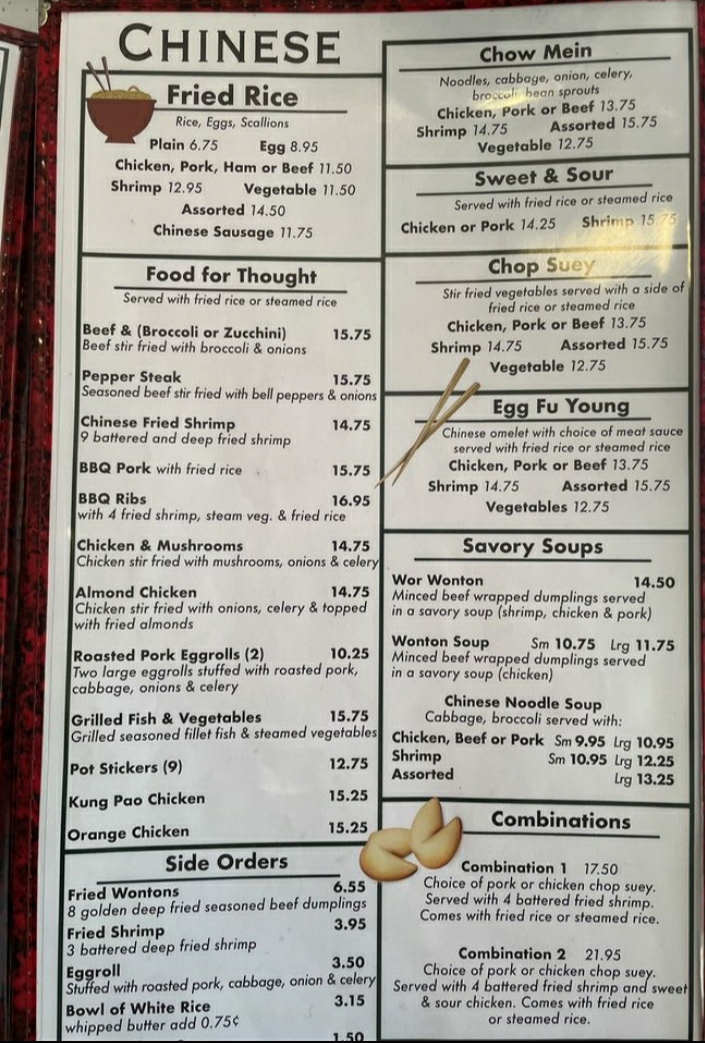 CHINESE
Fried Rice
Rice, Eggs, Scallions
Plain 6.75 Egg 8.95
Chicken, Pork, Ham or Beef 11.50
Shrimp 12.95 Vegetable 11.50
Assorted 14.50
Chinese Sausage 11.75
Food for Thought
Served with fried rice or steamed rice
Beef & (Broccoli or Zucchini) 15.75
Beef stir fried with broccoli & onions
Pepper Steak 15.75
Seasoned beef stir fried with bell peppers & onions
Chinese Fried Shrimp 14.75
9 battered and deep fried shrimp
BBQ Pork with fried rice 15.75
BBQ Ribs 16.95
with 4 fried shrimp, steam veg. & fried rice
Chicken & Mushrooms 14.75
Chicken stir fried with mushrooms, onions & celery
Almond Chicken 14.75
Chicken stir fried with onions, celery & topped
with fried almonds
Roasted Pork Eggrolls (2) 10.25
Two large eggrolls stuffed with roasted pork,
cabbage, onions & celery
Grilled Fish & Vegetables 15.75
Grilled seasoned fillet fish & steamed vegetables
Pot Stickers (9) 12.75
Kung Pao Chicken 15.25
Orange Chicken 15.25
Side Orders
Fried Wontons 6.55
8 golden deep fried seasoned beef dumplings
Fried Shrimp 3.95
3 battered deep fried shrimp
Eggroll 3.50
Stuffed with roasted pork, cabbage, onion & celery
Bowl of White Rice 3.15
whipped butter add 0.75¢
1.50
Chow Mein
Noodles, cabbage, onion, celery,
broccoli, bean sprouts
Chicken, Pork or Beef 13.75
Shrimp 14.75 Assorted 15.75
Vegetable 12.75
Sweet & Sour
Served with fried rice or steamed rice
Chicken or Pork 14.25 Shrimp 15.75
Chop Suey
Stir fried vegetables served with a side of
fried rice or steamed rice
Chicken, Pork or Beef 13.75
Shrimp 14.75 Assorted 15.75
Vegetable 12.75
Egg Fu Young
Chinese omelet with choice of meat sauce
served with fried rice or steamed rice
Chicken, Pork or Beef 13.75
Shrimp 14.75 Assorted 15.75
Vegetables 12.75
Savory Soups
Wor Wonton 14.50
Minced beef wrapped dumplings served
in a savory soup (shrimp, chicken & pork)
Wonton Soup Sm 10.75 Lrg 11.75
Minced beef wrapped dumplings served
in a savory soup (chicken)
Chinese Noodle Soup
Cabbage, broccoli served with:
Chicken, Beef or Pork Sm 9.95 Lrg 10.95
Shrimp Sm 10.95 Lrg 12.25
Assorted Lrg 13.25
Combinations
Combination 1 17.50
Choice of pork or chicken chop suey.
Served with 4 battered fried shrimp.
Comes with fried rice or steamed rice.
Combination 2 21.95
Choice of pork or chicken chop suey.
Served with 4 battered fried shrimp and sweet
& sour chicken. Comes with fried rice
or steamed rice.